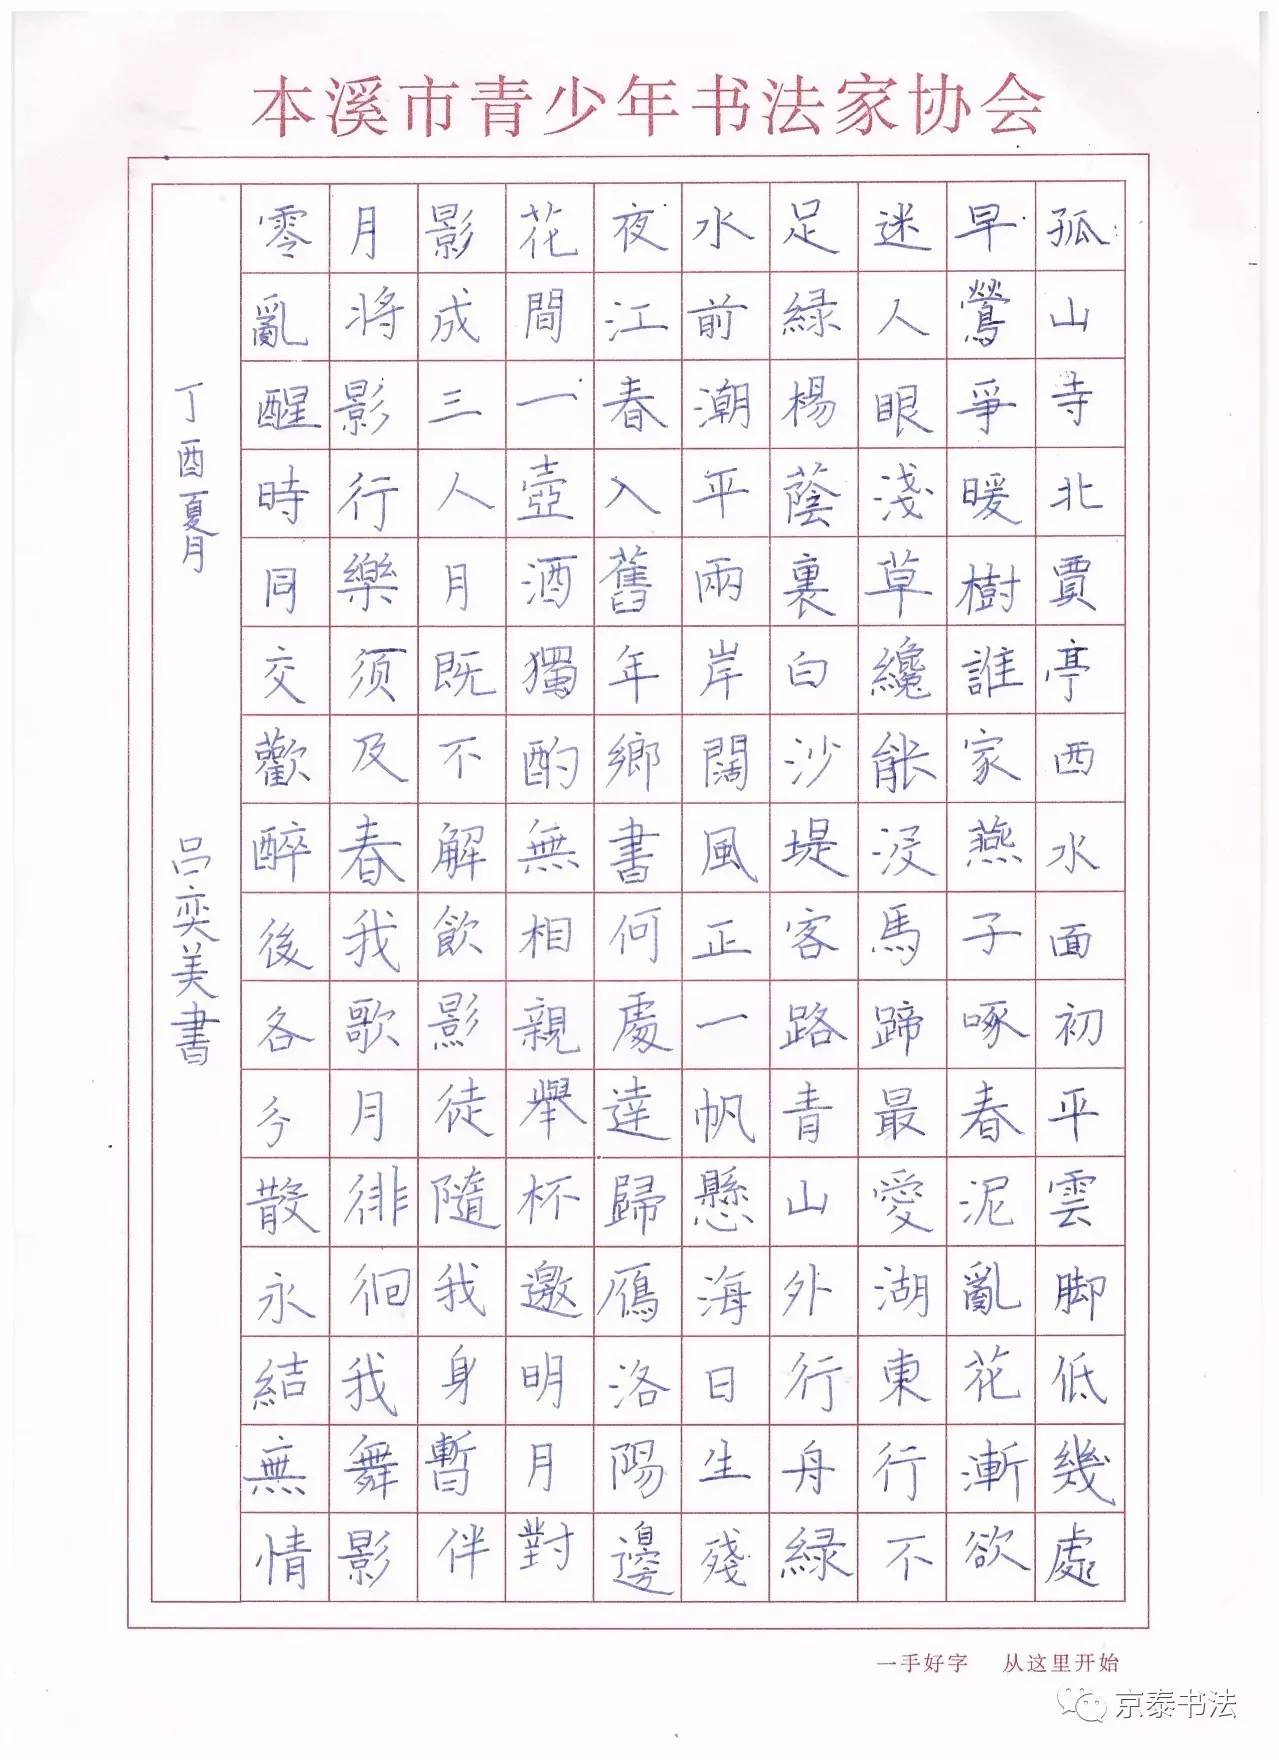 本溪市青少年书法家协会
孤山寺北賈亭西水面初平雲脚低幾處
早鶯爭暖樹誰家燕子啄春泥亂花漸欲
迷人眼淺草纔能沒馬蹄最愛湖東行不
足綠楊蔭裏白沙堤客路青山外行舟綠
水前潮平兩岸闊風正一帆懸海日生殘
夜江春入舊年鄉書何處達歸鴈洛陽邊
花間一壺酒獨酌無相親舉杯邀明月對
影成三人月既不解飲影徒隨我身暫伴
月將影行樂須及春我歌月徘徊我舞影
零亂醒時同交歡醉後各分散永結無情
丁酉夏月 呂奕美書
一手好字 从这里开始
京泰书法